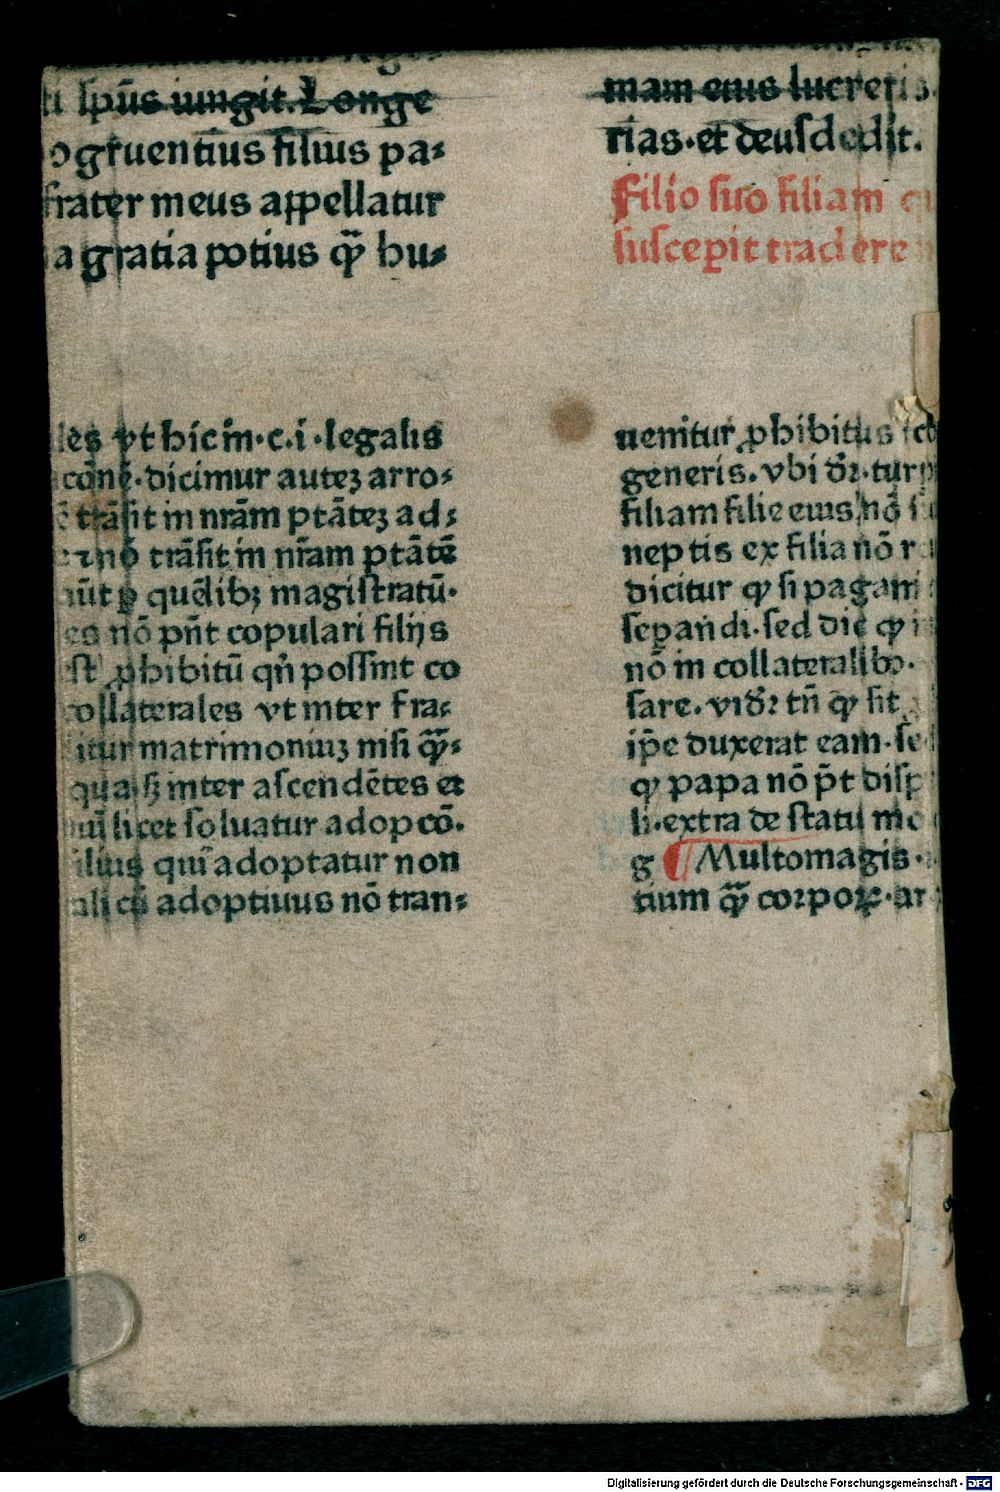 ti spūs iungit. Longe
ogruentius filius pa⸗
frater meus appellatur
a gratia potius qꝫ hu⸗
les vt hic in̄.c.i.legalis
cōne.dicimur autez arro⸗
trāsit in nrām ptātez ad⸗
nō trāsit in nr̄am ptātē
aūt ꝑ quēlibꝫ magistratū.
es nō pn̄t copulari filijs
st ꝓhibitū qn̄ possint co
collaterales vt inter fra⸗
itur matrimoniuꝫ nisi qꝫ⸗
qua.sꝫ inter ascendētes et
licet soluatur adopcō.
ilius qui adoptatur non
adoptiuus nō tran⸗
mam eius lucretis.
rias.et deusdedit.
Filio suo filiam
suscepit tradere
uenitur ꝓhibitus
generis.vbi dr̄.
filiam filie eius nō
neptis ex filia nō
dicitur ꝙ si pagani
sepandi.sed dic ꝙ
nō in collateralibꝰ.
sare.vidr̄ tn̄ ꝙ sit
ip̄e duxerat eam.se
ꝙ papa nō pt̄ disp
li.extra de statu mo
g ¶ Multomagis.
tium qꝫ corpoꝝ.ar
Digitalisierung gefördert durch die Deutsche Forschungsgemeinschaft - DFG